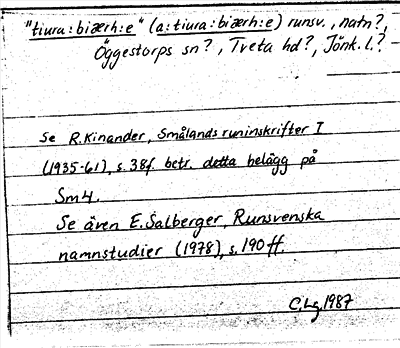 "tiura:biærh:e" (a:tiura:biærh:e) runsv., natn?,
Öggestorps sn?, Tveta hd?, Jönk. l.?
Se R. Kinander, Smålands runinskrifter I
(1935-61), s. 38f. betr. detta belägg på
Sm 4.
Se även E. Salberger, Runsvenska
namnstudier (1978), s. 190 ff.
C. Lg. 1987